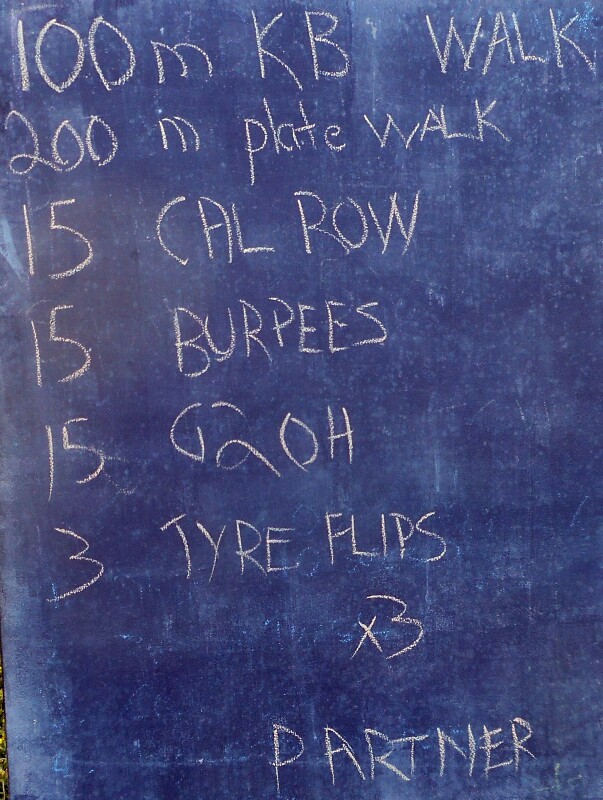 100 m KB WALK
200 m plate WALK
15 CAL ROW
15 BURPEES
15 G2OH
3 TYRE FLIPS
x3
PARTNER